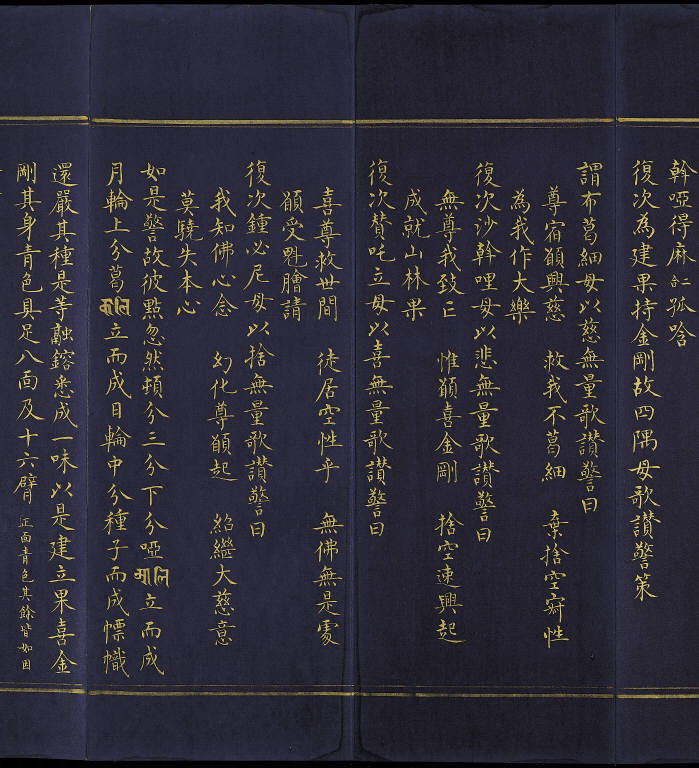 斡啞得麻㐌孤唅
復次為建果持金剛故四隅母歌讚警策
謂布葛細母以慈無量歌讚警曰
尊宿願興慈　救我不葛細　棄捨空寂性
為我作大樂
復次沙斡哩母以悲無量歌讚警曰
無尊我致亡　惟願喜金剛　捨空速興起
成就山林果
復次贊叱立母以喜無量歌讚警曰
喜尊救世間　徒居空性乎　無佛無是處
願受甦膾請
復次鍾必尼母以捨無量歌讚警曰
我知佛心念　幻化尊願起　紹繼大慈意
莫驍失本心
如是警故彼點忽然頓分三分下分啞立而成
月輪上分葛立而成日輪中分種子而成幖幟
還嚴其種是等融鎔悉成一味以是建立果喜金
剛其身青色具足八面及十六臂 正面青色其餘皆如因